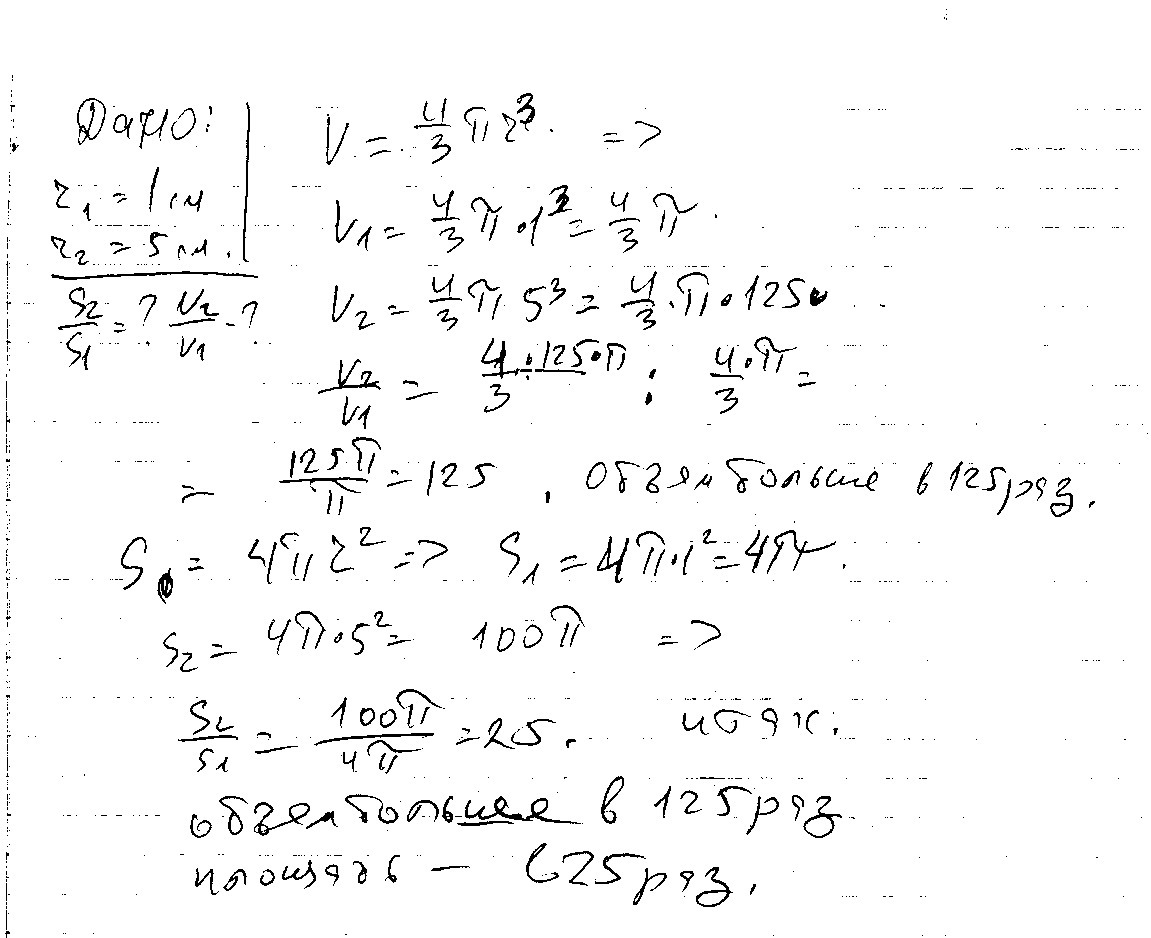 Дано:
r₁ = 1 см
r₂ = 5 см.
S₂/S₁ = ? V₂/V₁ - ?
V = 4/3 π r³. =>
V₁ = 4/3 π · 1³ = 4/3 π.
V₂ = 4/3 π 5³ = 4/3 · π · 125
V₂/V₁ = 4/3 · 125 · π : 4/3 · π =
= 125π/π = 125, объем больше в 125 раз.
S = 4πr² => S₁ = 4π·1² = 4π.
S₂ = 4π·5² = 100π =>
S₂/S₁ = 100π/4π = 25. итак.
объем больше в 125 раз
площадь – в 25 раз.